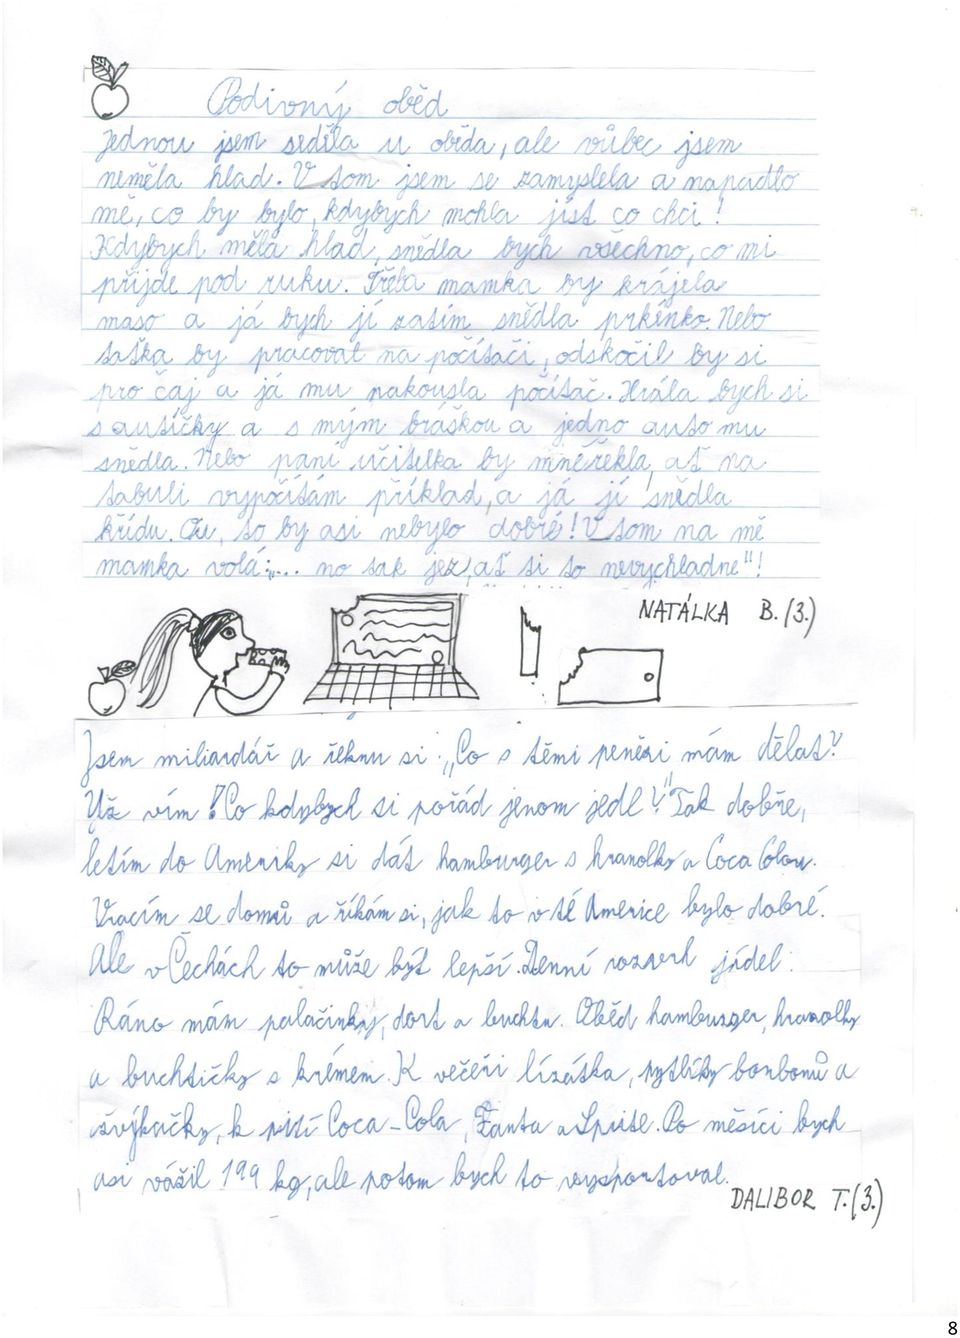 Podivný oběd
Jednou jsem seděla u oběda, ale vůbec jsem
neměla hlad. V tom jsem se zamyslela a napadlo
mě, co by bylo, kdybych mohla jíst co chci!
Kdybych měla hlad, snědla bych všechno, co mi
přijde pod ruku. Třeba mamka by krájela
maso a já bych jí zatím snědla prkénko. Nebo
taťka by pracoval na počítači, odskočil by si
pro čaj a já mu nakousla počítač. Hrála bych si
s autíčky a s mým bráškou a jedno auto mu
snědla. Nebo paní učitelka by mně řekla, ať na
tabuli vypočítám příklad, a já jí snědla
křídu. Ou, to by asi nebylo dobré! V tom na mě
mamka volá: „... no tak jez, ať ti to nevychladne"!
NATÁLKA B. (3.)
Jsem miliardář a řeknu si: „Co s těmi penězi mám dělat?
Už vím! Co kdybych si pořád jenom jedl?" Tak dobře,
letím do Ameriky si dát hamburger s hranolky a Coca Colou.
Vracím se domů a říkám si, jak to v té Americe bylo dobré.
Ale v Čechách to může být lepší. Denní rozvrh jídel:
Ráno mám palačinky, dort a buchtu. Oběd hamburger, hranolky
a buchtičky s krémem. K večeři lízátka, pytlíky bonbonů a
žvýkačky, k pití Coca-Cola, Fanta a Sprite. Po měsíci bych
asi vážil 199 kg, ale potom bych to vysportoval.
DALIBOR T. (3.)
8